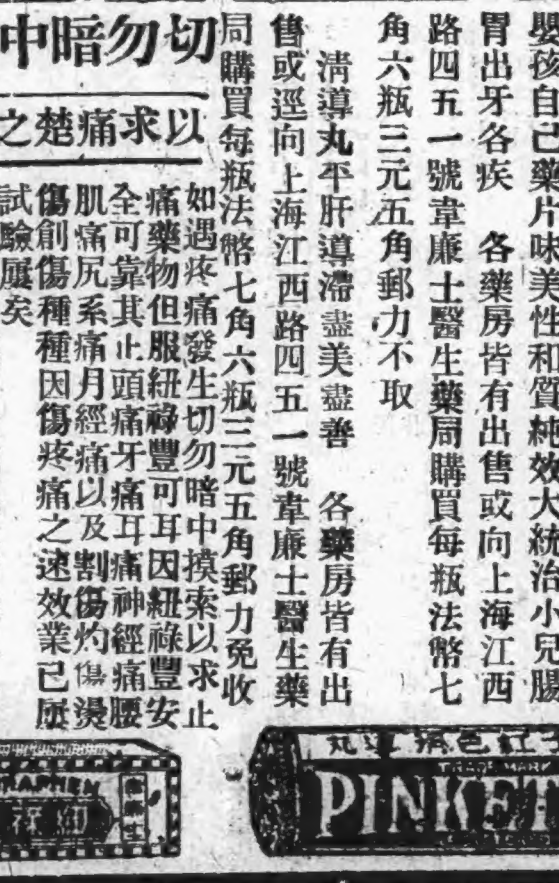 嬰孩自己藥片味美性和質純效大統治小兒腸
胃出牙各疾　各藥房皆有出售或向上海江西
路四五一號韋廉士醫生藥局購買每瓶法幣七
角六瓶三元五角郵力不取
清導丸平肝導滯盡美盡善　各藥房皆有出
售或逕向上海江西路四五一號韋廉士醫生藥
同購買每瓶法幣七角六瓶三元五角郵力免收
切勿暗中
以求痛楚之
如遇疼痛發生切勿暗中摸索以求止
痛藥物但服紐祿豐可耳因紐祿豐安
全可靠其止頭痛牙痛耳痛神經痛腰
肌痛尻系痛月經痛以及割傷灼傷燙
傷創傷種種因傷疼痛之速效業已屢
試驗屢矣
紅色清導丸
TRADE MARK
PINKET